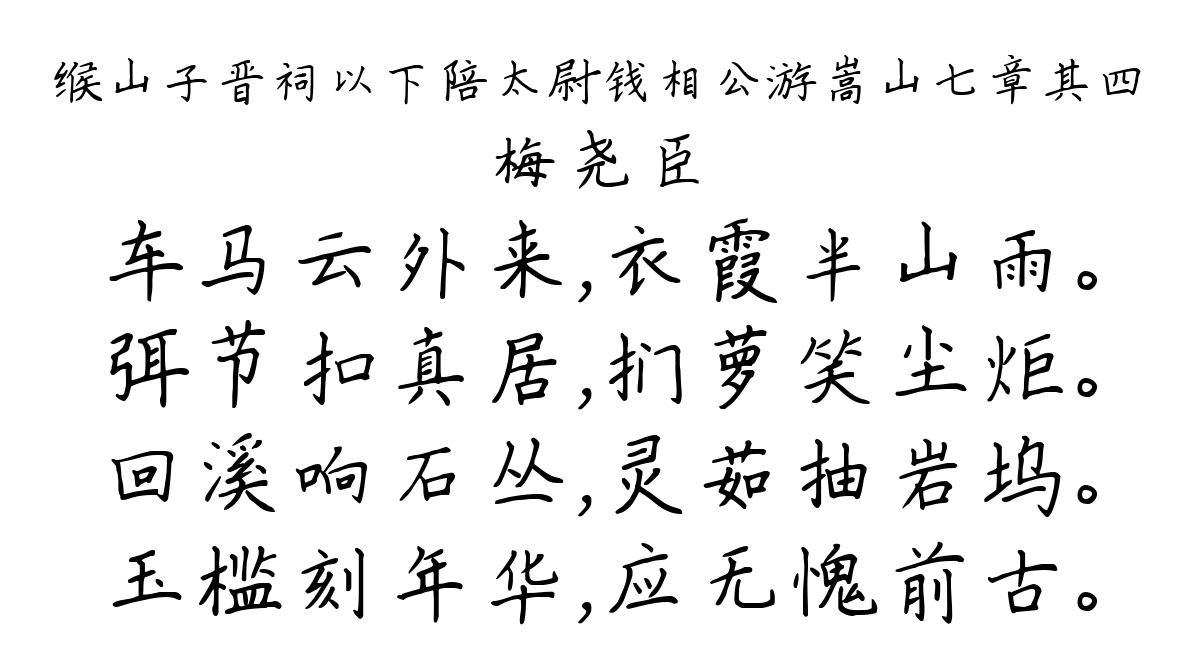 缑山子晋祠以下陪太尉钱相公游嵩山七章其四
梅尧臣
车马云外来,衣霞半山雨。
弭节扣真居,扪萝笑尘炬。
回溪响石丛,灵茹抽岩坞。
玉槛刻年华,应无愧前古。